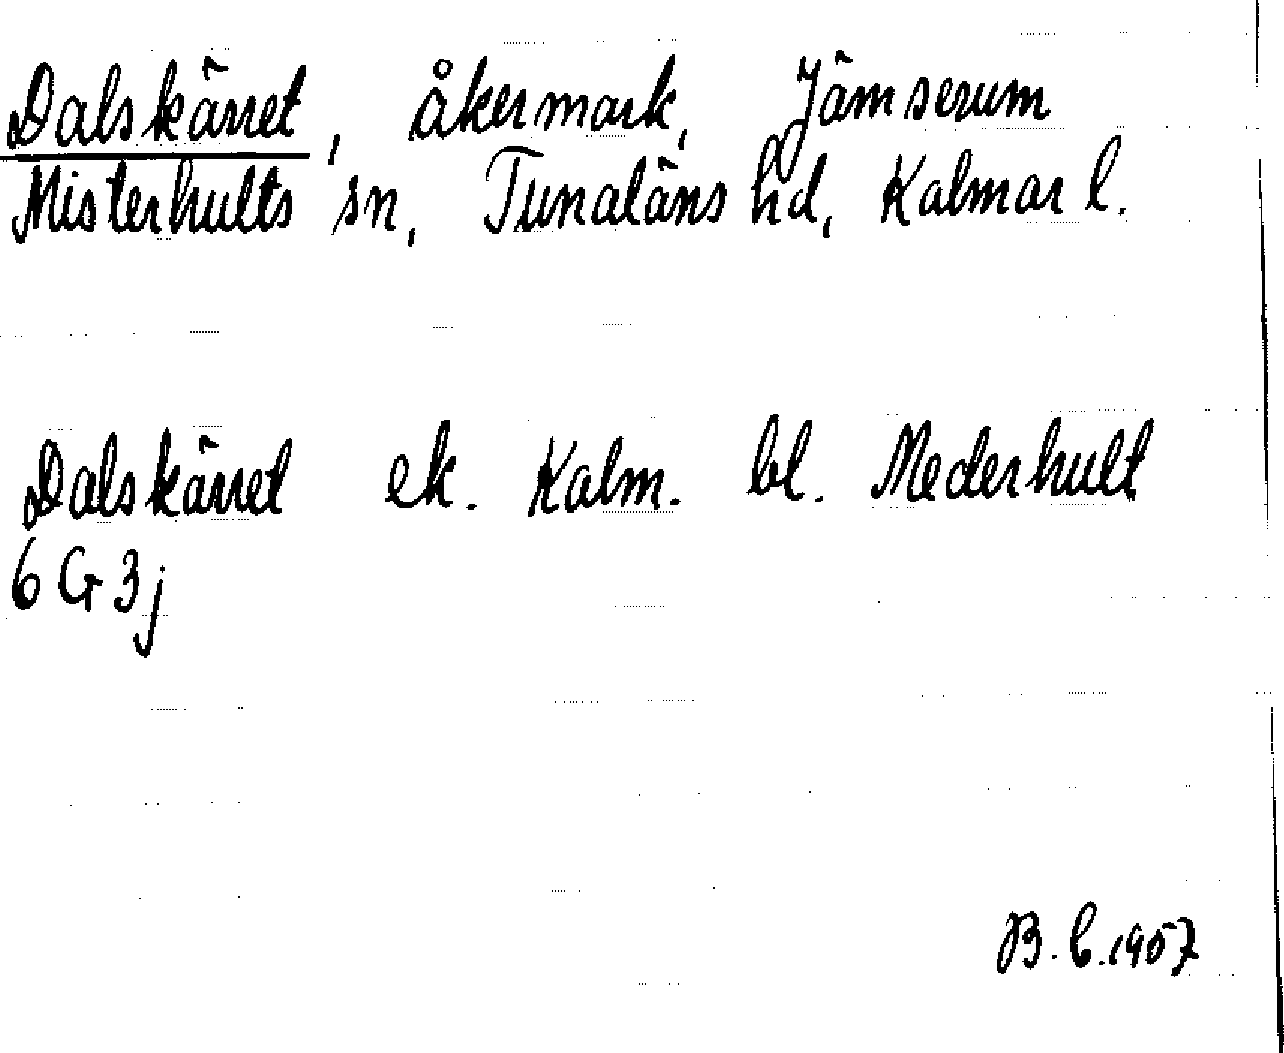 Dalskärret, åkermark, Jämserum
Misterhults sn, Tunaläns hd, Kalmar l.
Dalskärret ek. Kalm. bl. Mederhult
6 G 3j
B. C. 1957